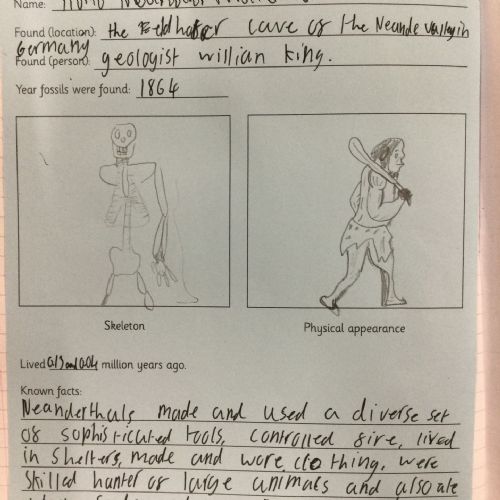 Name: Homo Neanderthal
Found (location): the Feldhofer cave of the Neande valley in
Germany
Found (person): geologist willian king.
Year fossils were found: 1864
Skeleton
Physical appearance
Lived million years ago.
Known facts:
Neanderthals made and used a diverse set
of sophisticated tools, controlled fire, lived
in shelters, made and wore clothing, were
skilled hunter of large animals and also ate